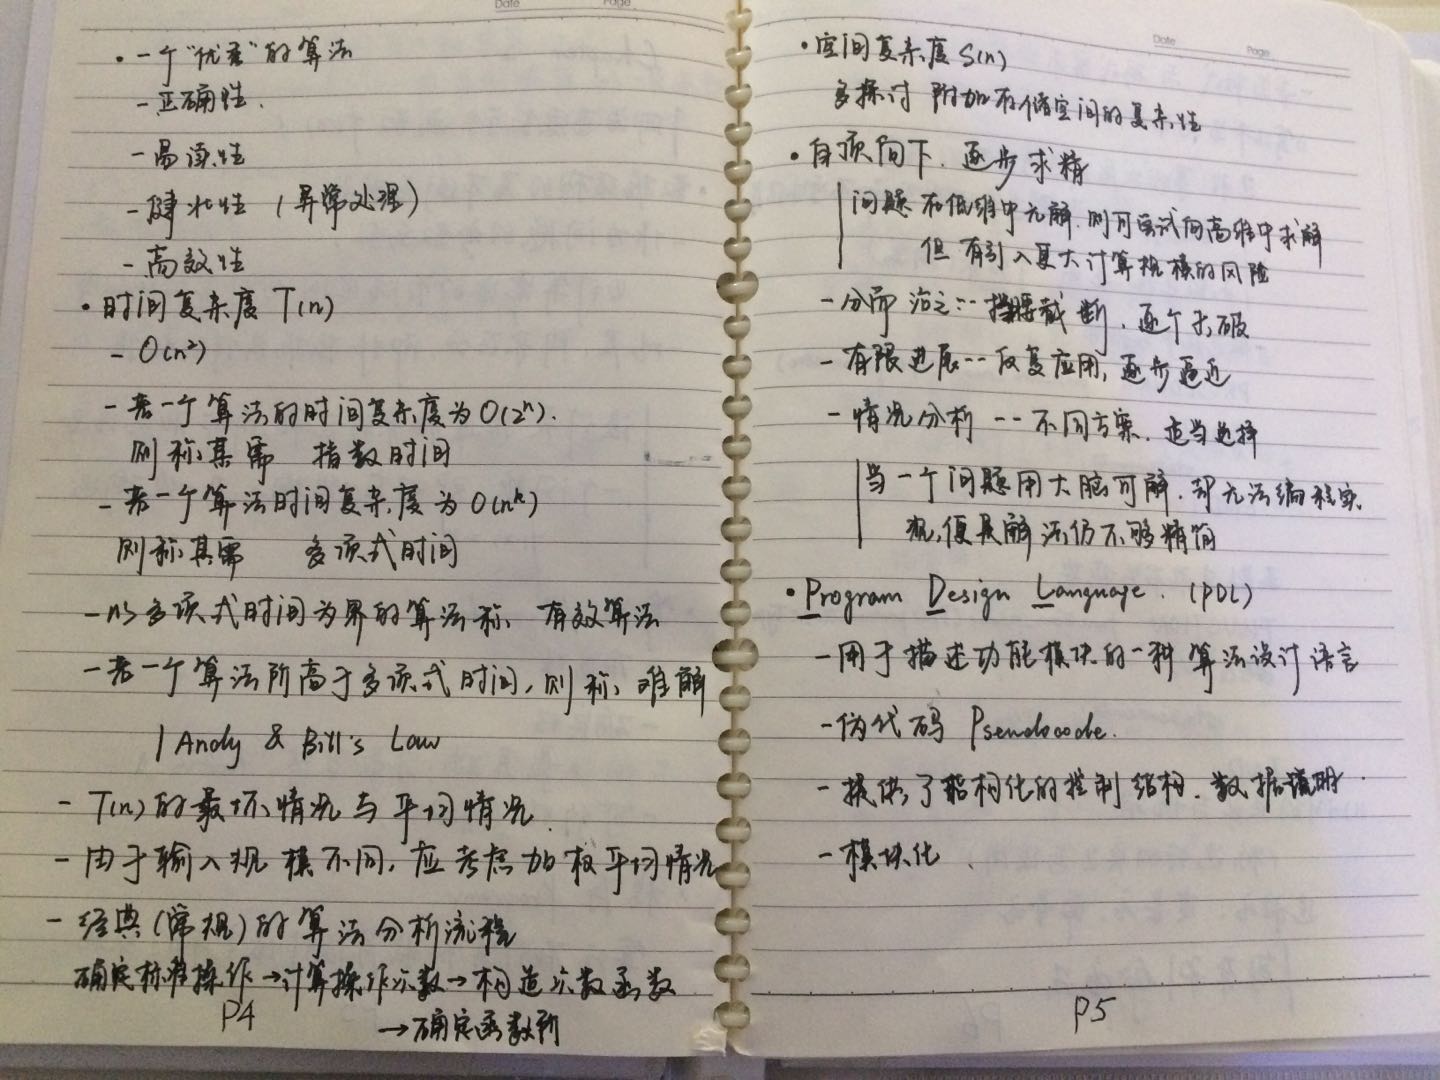 Date Page
• 一个"优秀"的算法
- 正确性.
- 易读性
- 健壮性 (异常处理)
- 高效性
• 时间复杂度 T(n)
- O(n²)
- 若一个算法的时间复杂度为O(2ⁿ).
则称其需 指数时间
- 若一个算法时间复杂度为O(nᵏ)
则称其需 多项式时间
- 以多项式时间为界的算法称 有效算法
- 若一个算法阶高于多项式时间, 则称 难解
| Andy & Bill's Law
- T(n)的最坏情况与平均情况
- 由于输入规模不同, 应考虑加权平均情况
- 经典(常规)的算法分析流程
确定标准操作→计算操作次数→构造次数函数
→确定函数阶
P4
Date Page
• 空间复杂度 S(n)
多探讨 附加存储空间的复杂性
• 自顶向下. 逐步求精
问题在低维中无解, 则可尝试向高维中求解
但有引入更大计算规模的风险
- 分而治之… 拦腰截断, 逐个击破
- 有限进展… 反复应用, 逐步逼近
- 情况分析 … 不同方案. 适当选择
当一个问题用大脑可解, 却无法编程实
现, 便是解法仍不够精简
• Program Design Language. (PDL)
- 用于描述功能模块的一种算法设计语言
- 伪代码 Pseudocode.
- 提供了结构化的控制结构. 数据说明.
- 模块化
P5